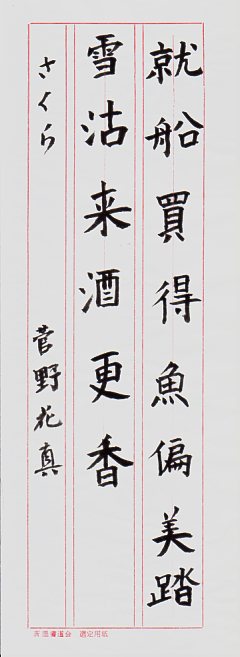 就船買得魚偏美踏
雪沽来酒更香
さくら
菅野花真
書道会 選定用紙